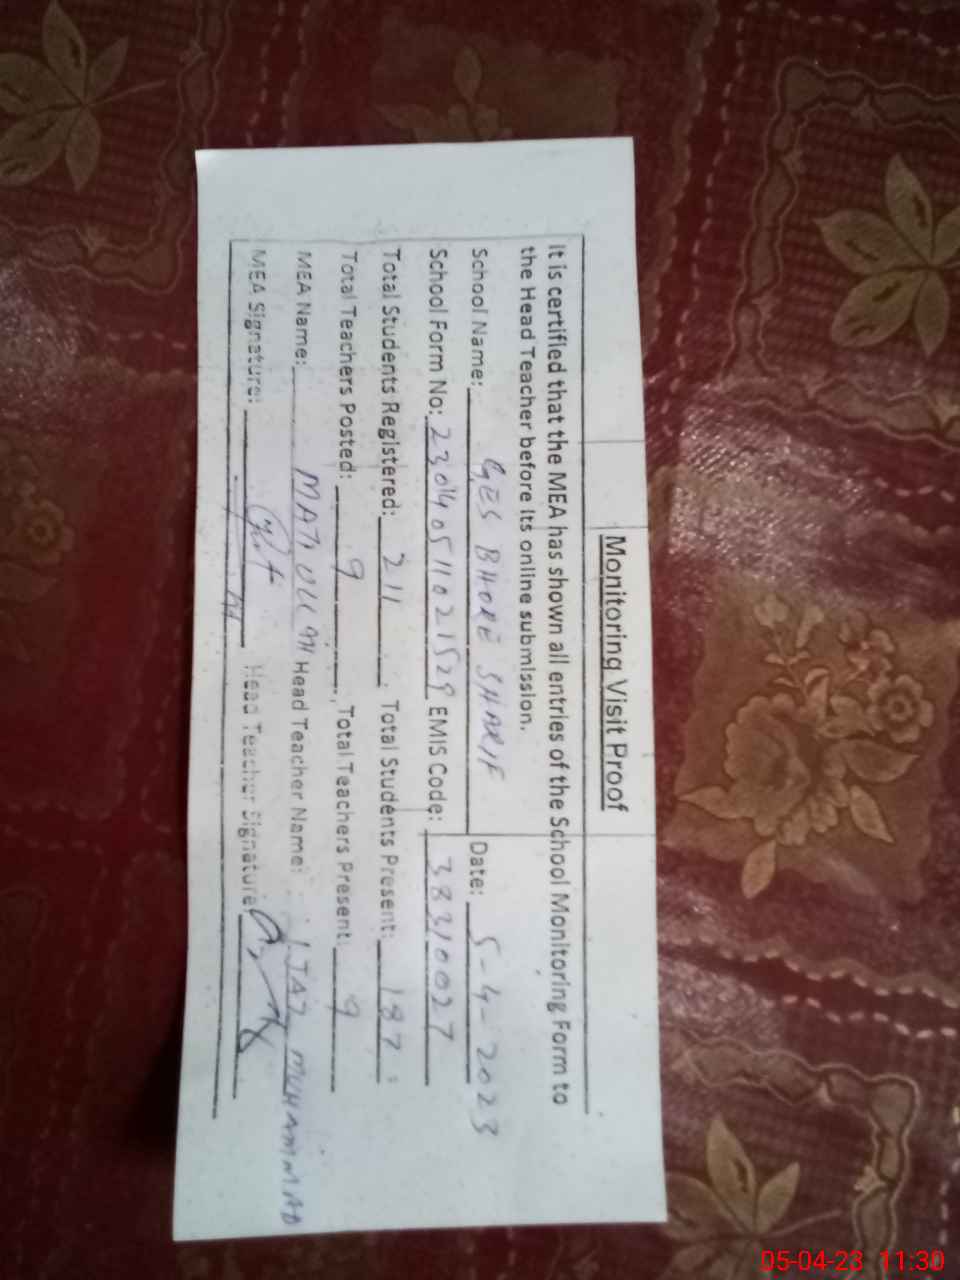 Monitoring Visit Proof
It is certified that the MEA has shown all entries of the School Monitoring Form to
the Head Teacher before its online submission.
School Name: GES BHORE SHARIF Date: 5-4-2023
School Form No: EMIS Code: 38310027
Total Students Registered: 211. Total Students Present: 187.
Total Teachers Posted: 9. Total Teachers Present: 9
MEA Name: Head Teacher Name: IJAZ MUHAMMAD
MEA Signature: Head Teacher Signature
05-04-23 11:30